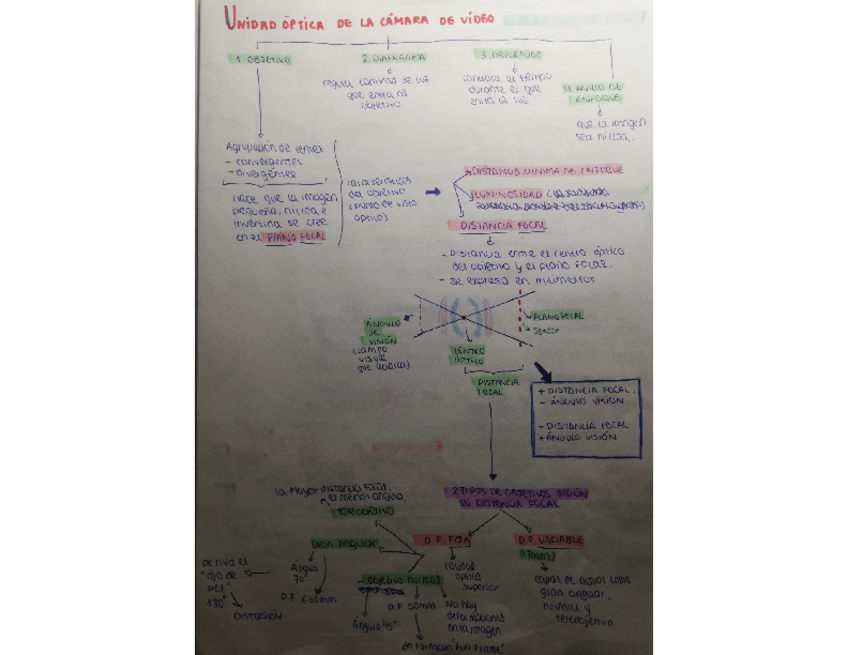 UNIDAD ÓPTICA DE LA CÁMARA DE VÍDEO
1. OBJETIVO
2. DIAFRAGMA
regula cantidad de luz
que entra al
objetivo
3. OBTURADOR
controla el tiempo
durante el que
entra la luz
4. ANILLO DE
ENFOQUE
que la imagen
sea nítida.
Agrupación de lentes
- convergentes
- divergentes
Hace que la imagen
pequeña, nítida e
invertida se cree
en el PLANO FOCAL
características
del objetivo
(punto de vista
óptico)
DISTANCIA MÍNIMA DE ENFOQUE
LUMINOSIDAD
DISTANCIA FOCAL
- Distancia entre el centro óptico
del objetivo y el plano focal.
- se expresa en milímetros
ÁNGULO
DE
VISIÓN
(campo
visual
que abarca)
PLANO FOCAL
SENSOR
CENTRO
ÓPTICO
DISTANCIA
FOCAL
+ DISTANCIA FOCAL.
- ÁNGULO VISIÓN
- DISTANCIA FOCAL
+ ÁNGULO VISIÓN
2 TIPOS DE OBJETIVOS SEGÚN
SU DISTANCIA FOCAL
la mayor distancia focal,
el menor ángulo
TELEOBJETIVO
D.F. FIJA
D.F. VARIABLE
(ZOOM)
Gran angular
Ángulo
70°
D.F. ≤30mm
Deriva el
"ojo de
pez"
180°
DISTORSIÓN
- objetivo normal
Ángulo 45°
D.F 50mm
en formato "Full Frame"
No hay
deformaciones
en la imagen
calidad
óptica
superior
capaz de actuar como
gran angular,
normal y
teleobjetivo.